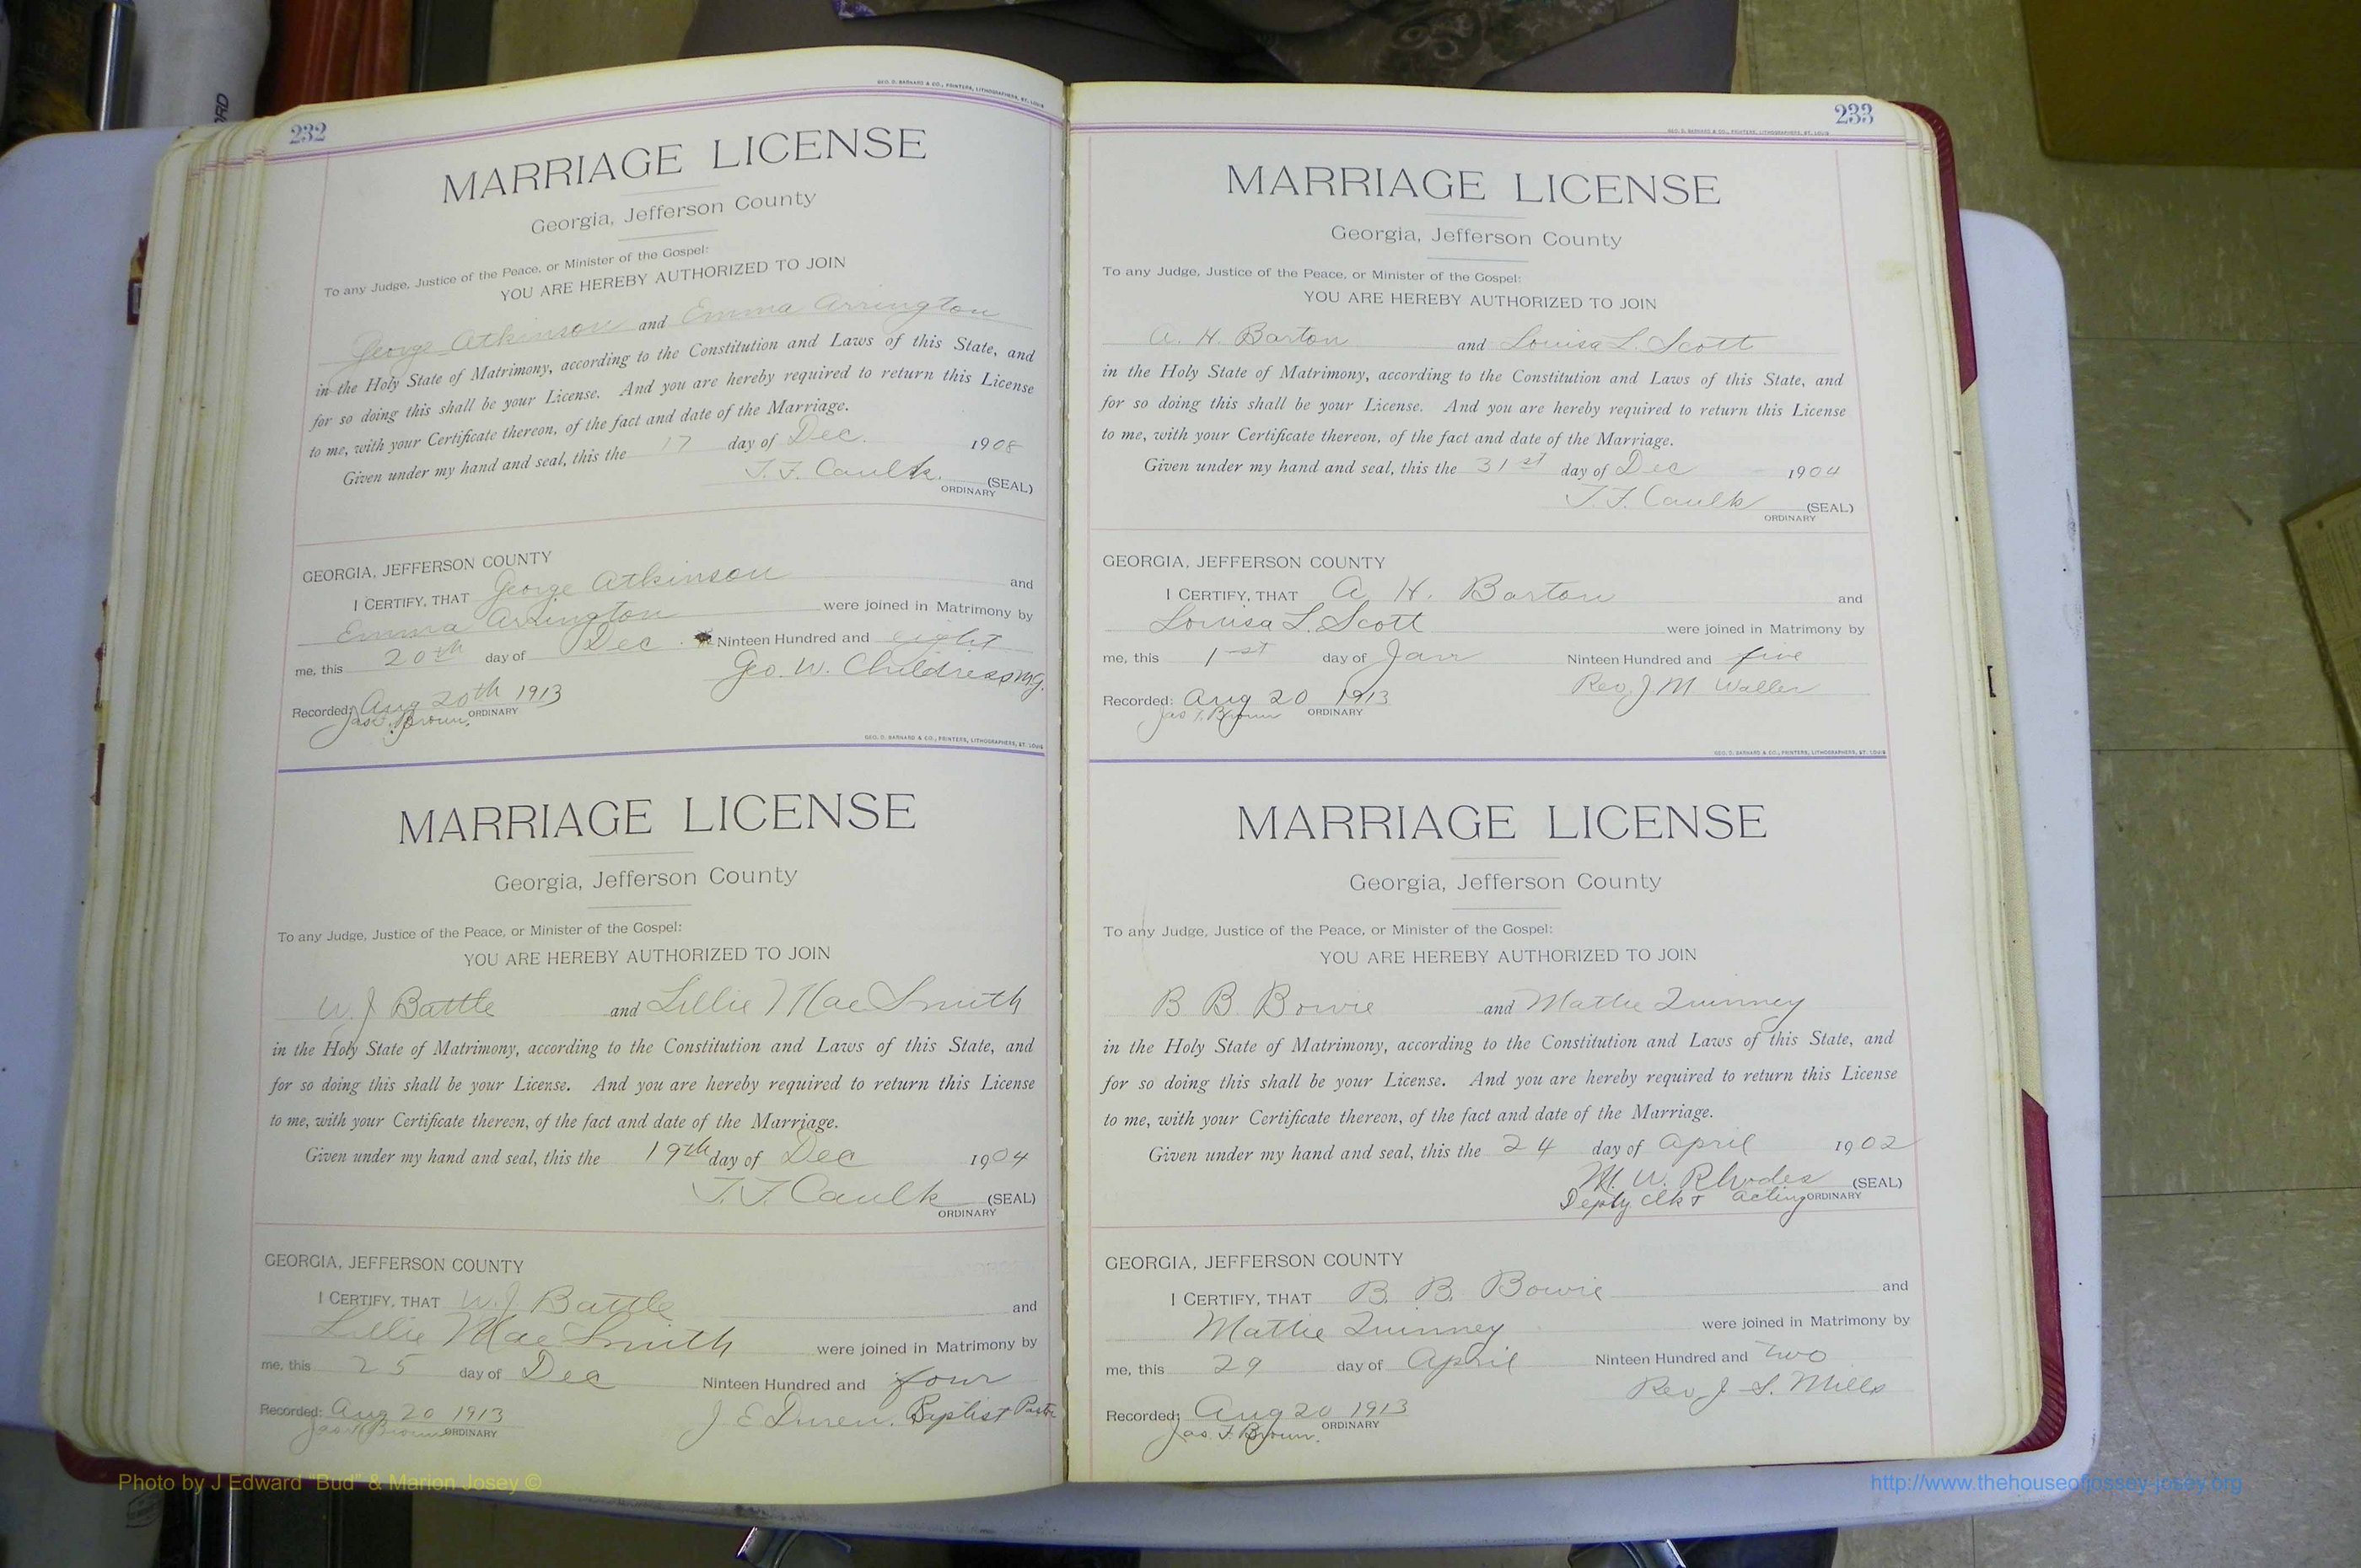 RD
GEO. D. BARNARD & CO., PRINTERS, LITHOGRAPHERS, ST. LOUIS
232
MARRIAGE LICENSE
Georgia, Jefferson County
To any Judge, Justice of the Peace, or Minister of the Gospel:
YOU ARE HEREBY AUTHORIZED TO JOIN
George Atkinson and Emma Arrington
in the Holy State of Matrimony, according to the Constitution and Laws of this State, and
for so doing this shall be your License. And you are hereby required to return this License
to me, with your Certificate thereon, of the fact and date of the Marriage.
Given under my hand and seal, this the 17 day of Dec. 1908
T. F. Caulk. (SEAL)
ORDINARY
GEORGIA, JEFFERSON COUNTY
I CERTIFY, THAT George Atkinson and
Emma Arrington were joined in Matrimony by
me, this 20th day of Dec Ninteen Hundred and eight
Geo. W. Childress M.G.
Recorded: Aug 20th 1913
Jas. F. Brown, ORDINARY
GEO. D. BARNARD & CO., PRINTERS, LITHOGRAPHERS, ST. LOUIS
MARRIAGE LICENSE
Georgia, Jefferson County
To any Judge, Justice of the Peace, or Minister of the Gospel:
YOU ARE HEREBY AUTHORIZED TO JOIN
W. J Battle and Lillie Mae Smith
in the Holy State of Matrimony, according to the Constitution and Laws of this State, and
for so doing this shall be your License. And you are hereby required to return this License
to me, with your Certificate thereon, of the fact and date of the Marriage.
Given under my hand and seal, this the 19th day of Dec 1904
T. F. Caulk (SEAL)
ORDINARY
GEORGIA, JEFFERSON COUNTY
I CERTIFY, THAT W. J Battle and
Lillie Mae Smith were joined in Matrimony by
me, this 25 day of Dec Ninteen Hundred and four
Recorded: Aug 20 1913 J E Duren. Baptist Pastor
Jas F. Brown ORDINARY
233
GEO. D. BARNARD & CO., PRINTERS, LITHOGRAPHERS, ST. LOUIS
MARRIAGE LICENSE
Georgia, Jefferson County
To any Judge, Justice of the Peace, or Minister of the Gospel:
YOU ARE HEREBY AUTHORIZED TO JOIN
A. H. Barton and Louisa L. Scott
in the Holy State of Matrimony, according to the Constitution and Laws of this State, and
for so doing this shall be your License. And you are hereby required to return this License
to me, with your Certificate thereon, of the fact and date of the Marriage.
Given under my hand and seal, this the 31st day of Dec 1904
T. F. Caulk (SEAL)
ORDINARY
GEORGIA, JEFFERSON COUNTY
I CERTIFY, THAT A H. Barton and
Louisa L. Scott were joined in Matrimony by
me, this 1st day of Jan Ninteen Hundred and five
Rev. J. M Waller
Recorded: Aug 20 1913
Jas F. Brown ORDINARY
GEO. D. BARNARD & CO., PRINTERS, LITHOGRAPHERS, ST. LOUIS
MARRIAGE LICENSE
Georgia, Jefferson County
To any Judge, Justice of the Peace, or Minister of the Gospel:
YOU ARE HEREBY AUTHORIZED TO JOIN
B B. Bowie and Mattie Quinney
in the Holy State of Matrimony, according to the Constitution and Laws of this State, and
for so doing this shall be your License. And you are hereby required to return this License
to me, with your Certificate thereon, of the fact and date of the Marriage.
Given under my hand and seal, this the 24 day of April 1902
M. W. Rhodes (SEAL)
Depty Clk & acting ORDINARY
GEORGIA, JEFFERSON COUNTY
I CERTIFY, THAT B. B. Bowie and
Mattie Quinney were joined in Matrimony by
me, this 29 day of April Ninteen Hundred and two
Rev J. S. Mills
Recorded: Aug 20 1913
Jas. F. Brown. ORDINARY
Photo by J Edward "Bud" & Marion Josey ©
http://www.thehouseofjossey-josey.org